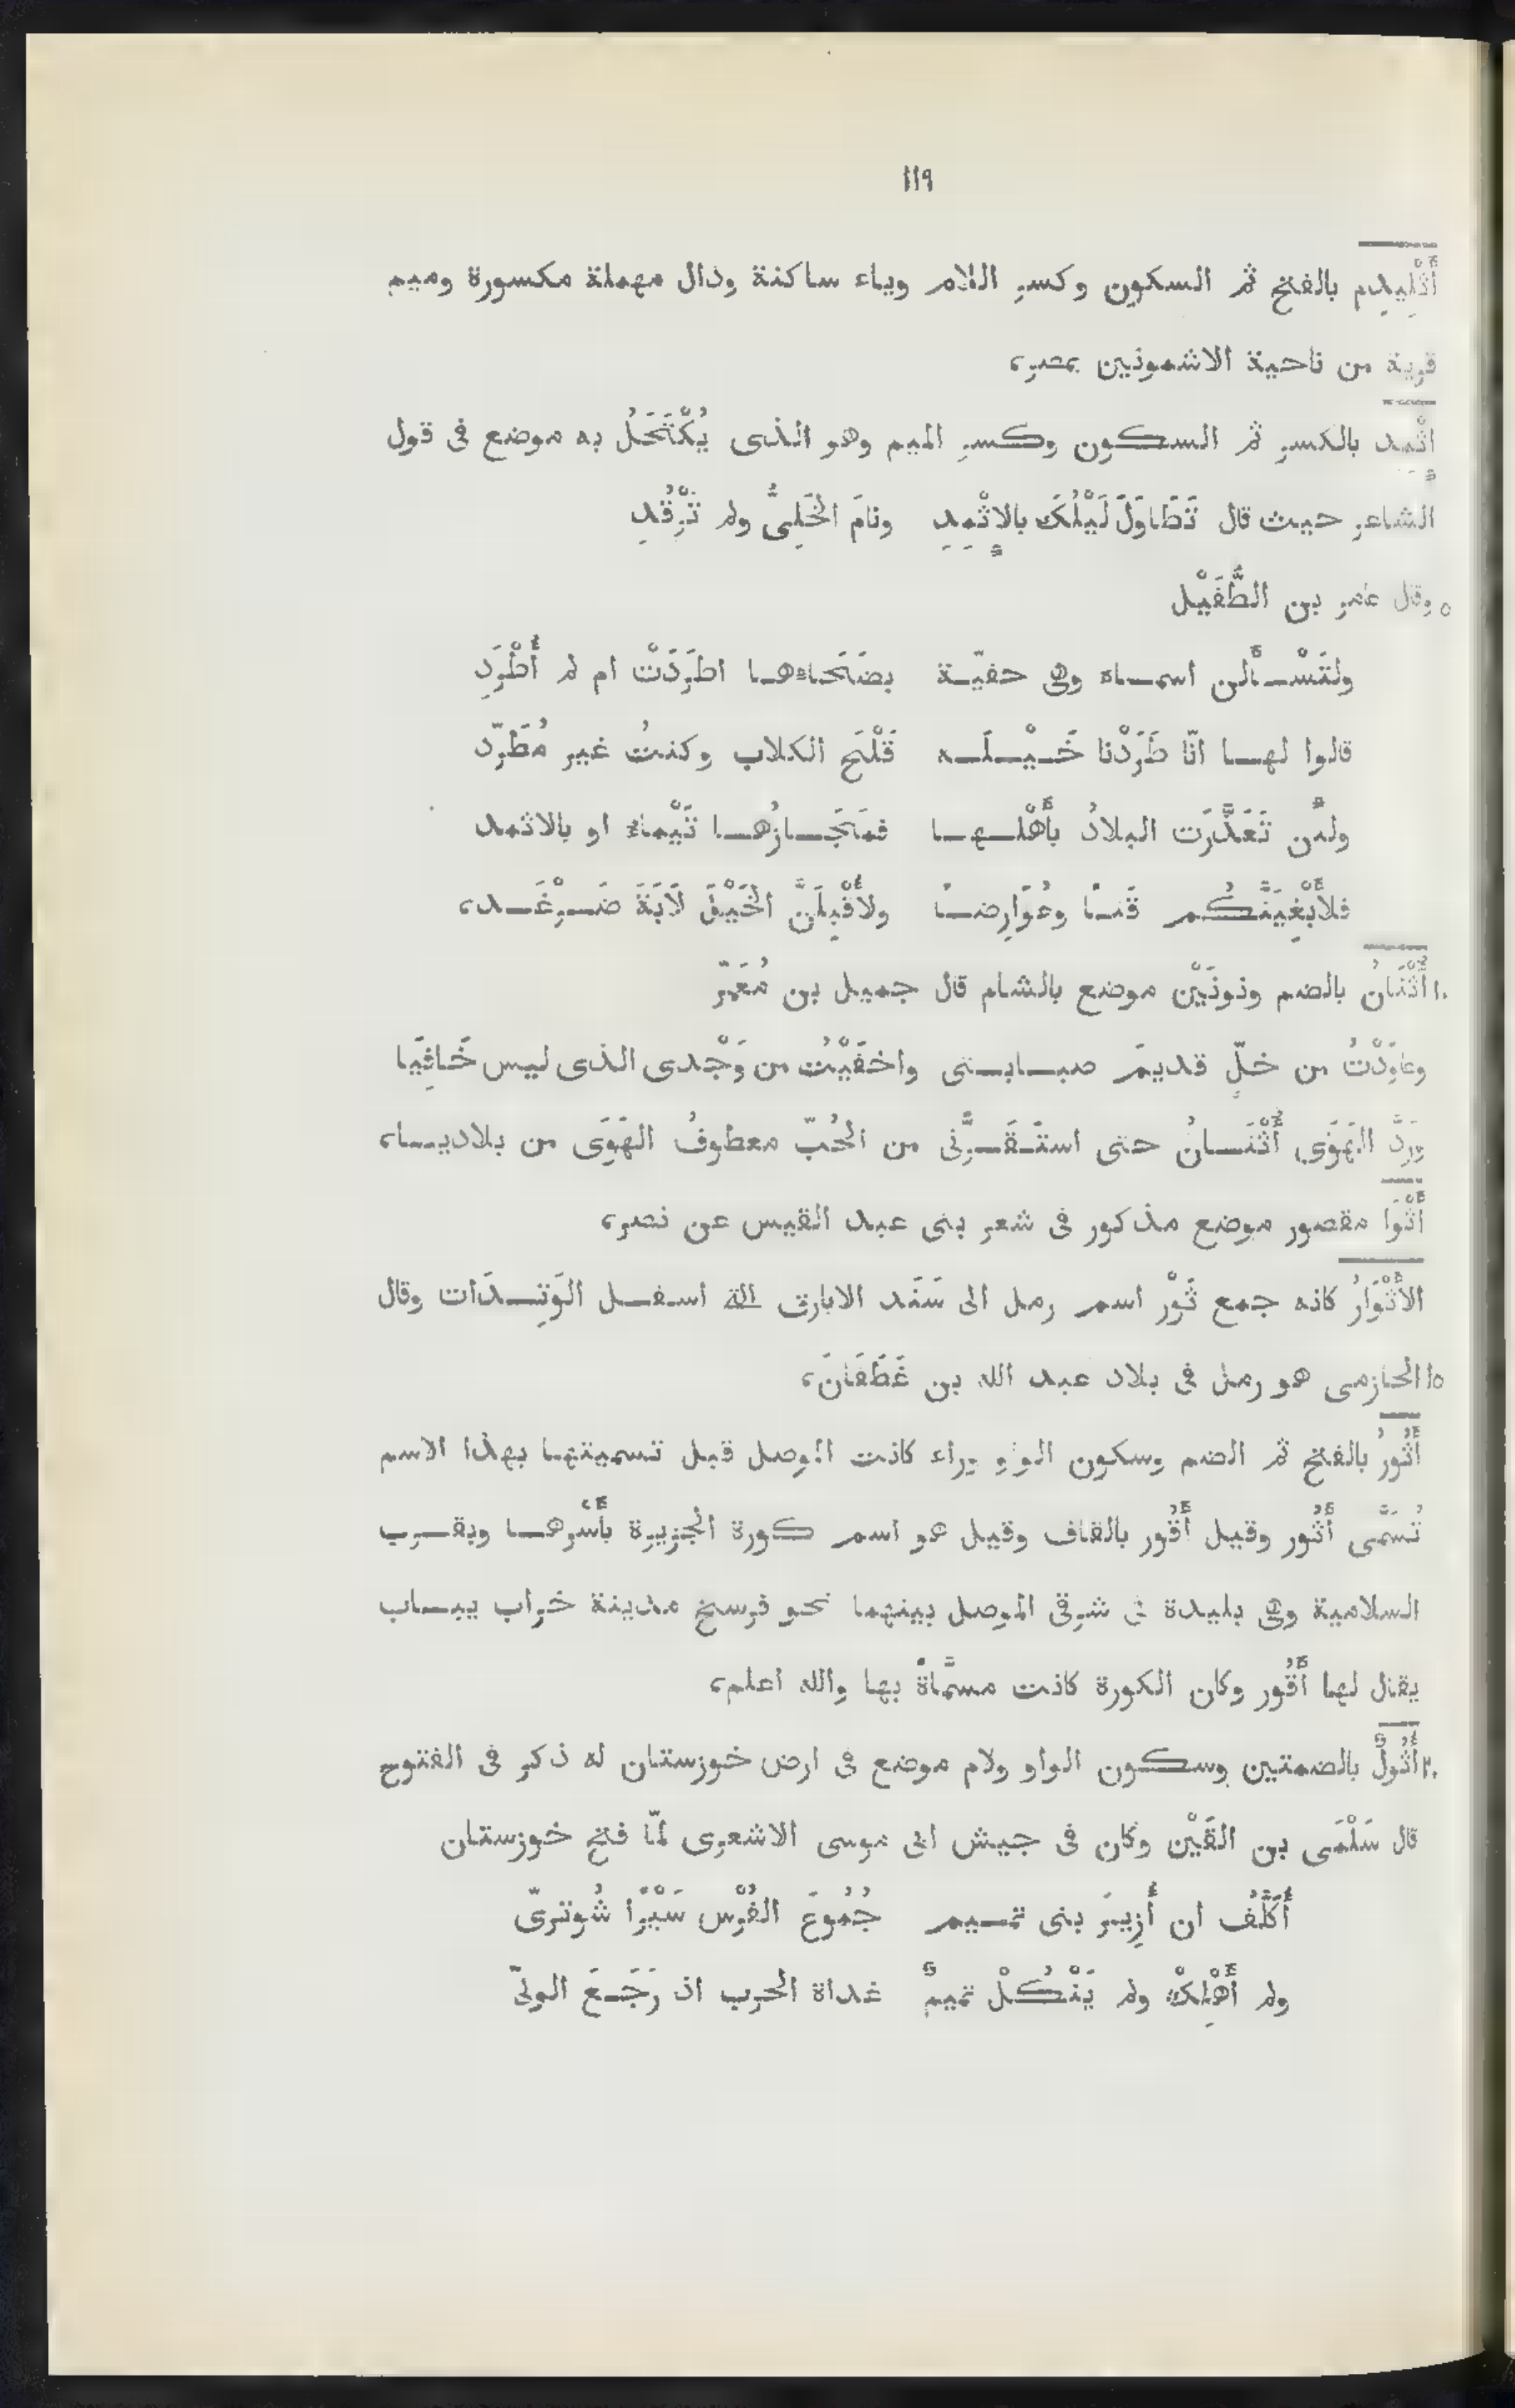 ١١٩
أَثْلِيدِم بالفتح ثم السكون وكسر اللام وياء ساكنة ودال مهملة مكسورة وميم
قرية من ناحية الاشمونين بمصر،
اثْمِد بالكسر ثم السكون وكسر الميم وهو الذى يُكْتَحَلُ به موضع فى قول
الشاعر حيث قال تَطَاوَلَ لَيْلُكَ بالإثْمِدِ ونامَ الخَلِىُّ ولم تَرْقُدِ
٥ وقال عامر بن الطُّفَيْل
ولتَسْـألن اسمـاء وهى حفيّة بضَحَاءهـا اطرَدَتْ ام لم أُطْرَدِ
قالوا لهـا انّا طَرَدْنا خَـيْـلَـه قَلْحَ الكلاب وكنتُ غير مُطَرّد
ولئن تَعَذَّرَت البلادُ بأَهْلـهـا فمَجَـازُهـا تَيْماءُ او بالاثمد
فلأَبْغِيَنَّكُم قَنـًا وعُوَارِضـًا ولأُقْبِلَنَّ الخَيْلَ لَابَةَ ضَـرْغَـد،
١٠ أُثْنَانُ بالضم ونونَيْن موضع بالشام قال جميل بن مُعَمّر
وعاوَدْتُ من خلٍّ قديمَ صبـابـتى واخفَيْتُ من وَجْدى الذى ليس خَافِيَا
ورَدَّ الهَوَى أُثْنَـانُ حتى استَـقَـرَّنى من الحُبّ معطوفُ الهَوَى من بلاديـا،
أَثْوَا مقصور موضع مذكور فى شعر بنى عبد القيس عن نصر،
الأَثْوَارُ كانه جمع ثَوْر اسم رمل الى سَنَد الابارق التى اسفـل الوَتِـدَات وقال
١٥ الحازمى هو رمل فى بلاد عبد الله بن غَطَفَانَ،
أَثُورُ بالفتح ثم الضم وسكون الواو وراء كانت الموصل قبل تسميتها بهذا الاسم
تُسَمَّى أَثُور وقيل أَقُور بالقاف وقيل هو اسم كورة الجزيرة بأَسْرهـا وبقـرب
السلامية وهى بليدة فى شرقى الموصل بينهما نحو فرسخ مدينة خراب يبـاب
يقال لها أَقُور وكان الكورة كانت مسمَّاةً بها والله اعلم،
٢٠ أُثُولٌ بالضمتين وسكون الواو ولام موضع فى ارض خوزستان له ذكر فى الفتوح
قال سَلْمَى بن القَيْن وكان فى جيش ابى موسى الاشعرى لمّا فتح خوزستان
أُكَلَّفُ ان أُزِيرَ بنى تمـيم جُمُوعَ الفُرْس سَيْرًا شُوترىّ
ولم أَهْلِكْ ولم يَنْكُلْ تميمٌ غداةَ الحرب اذ رَجَـعَ الولىّ